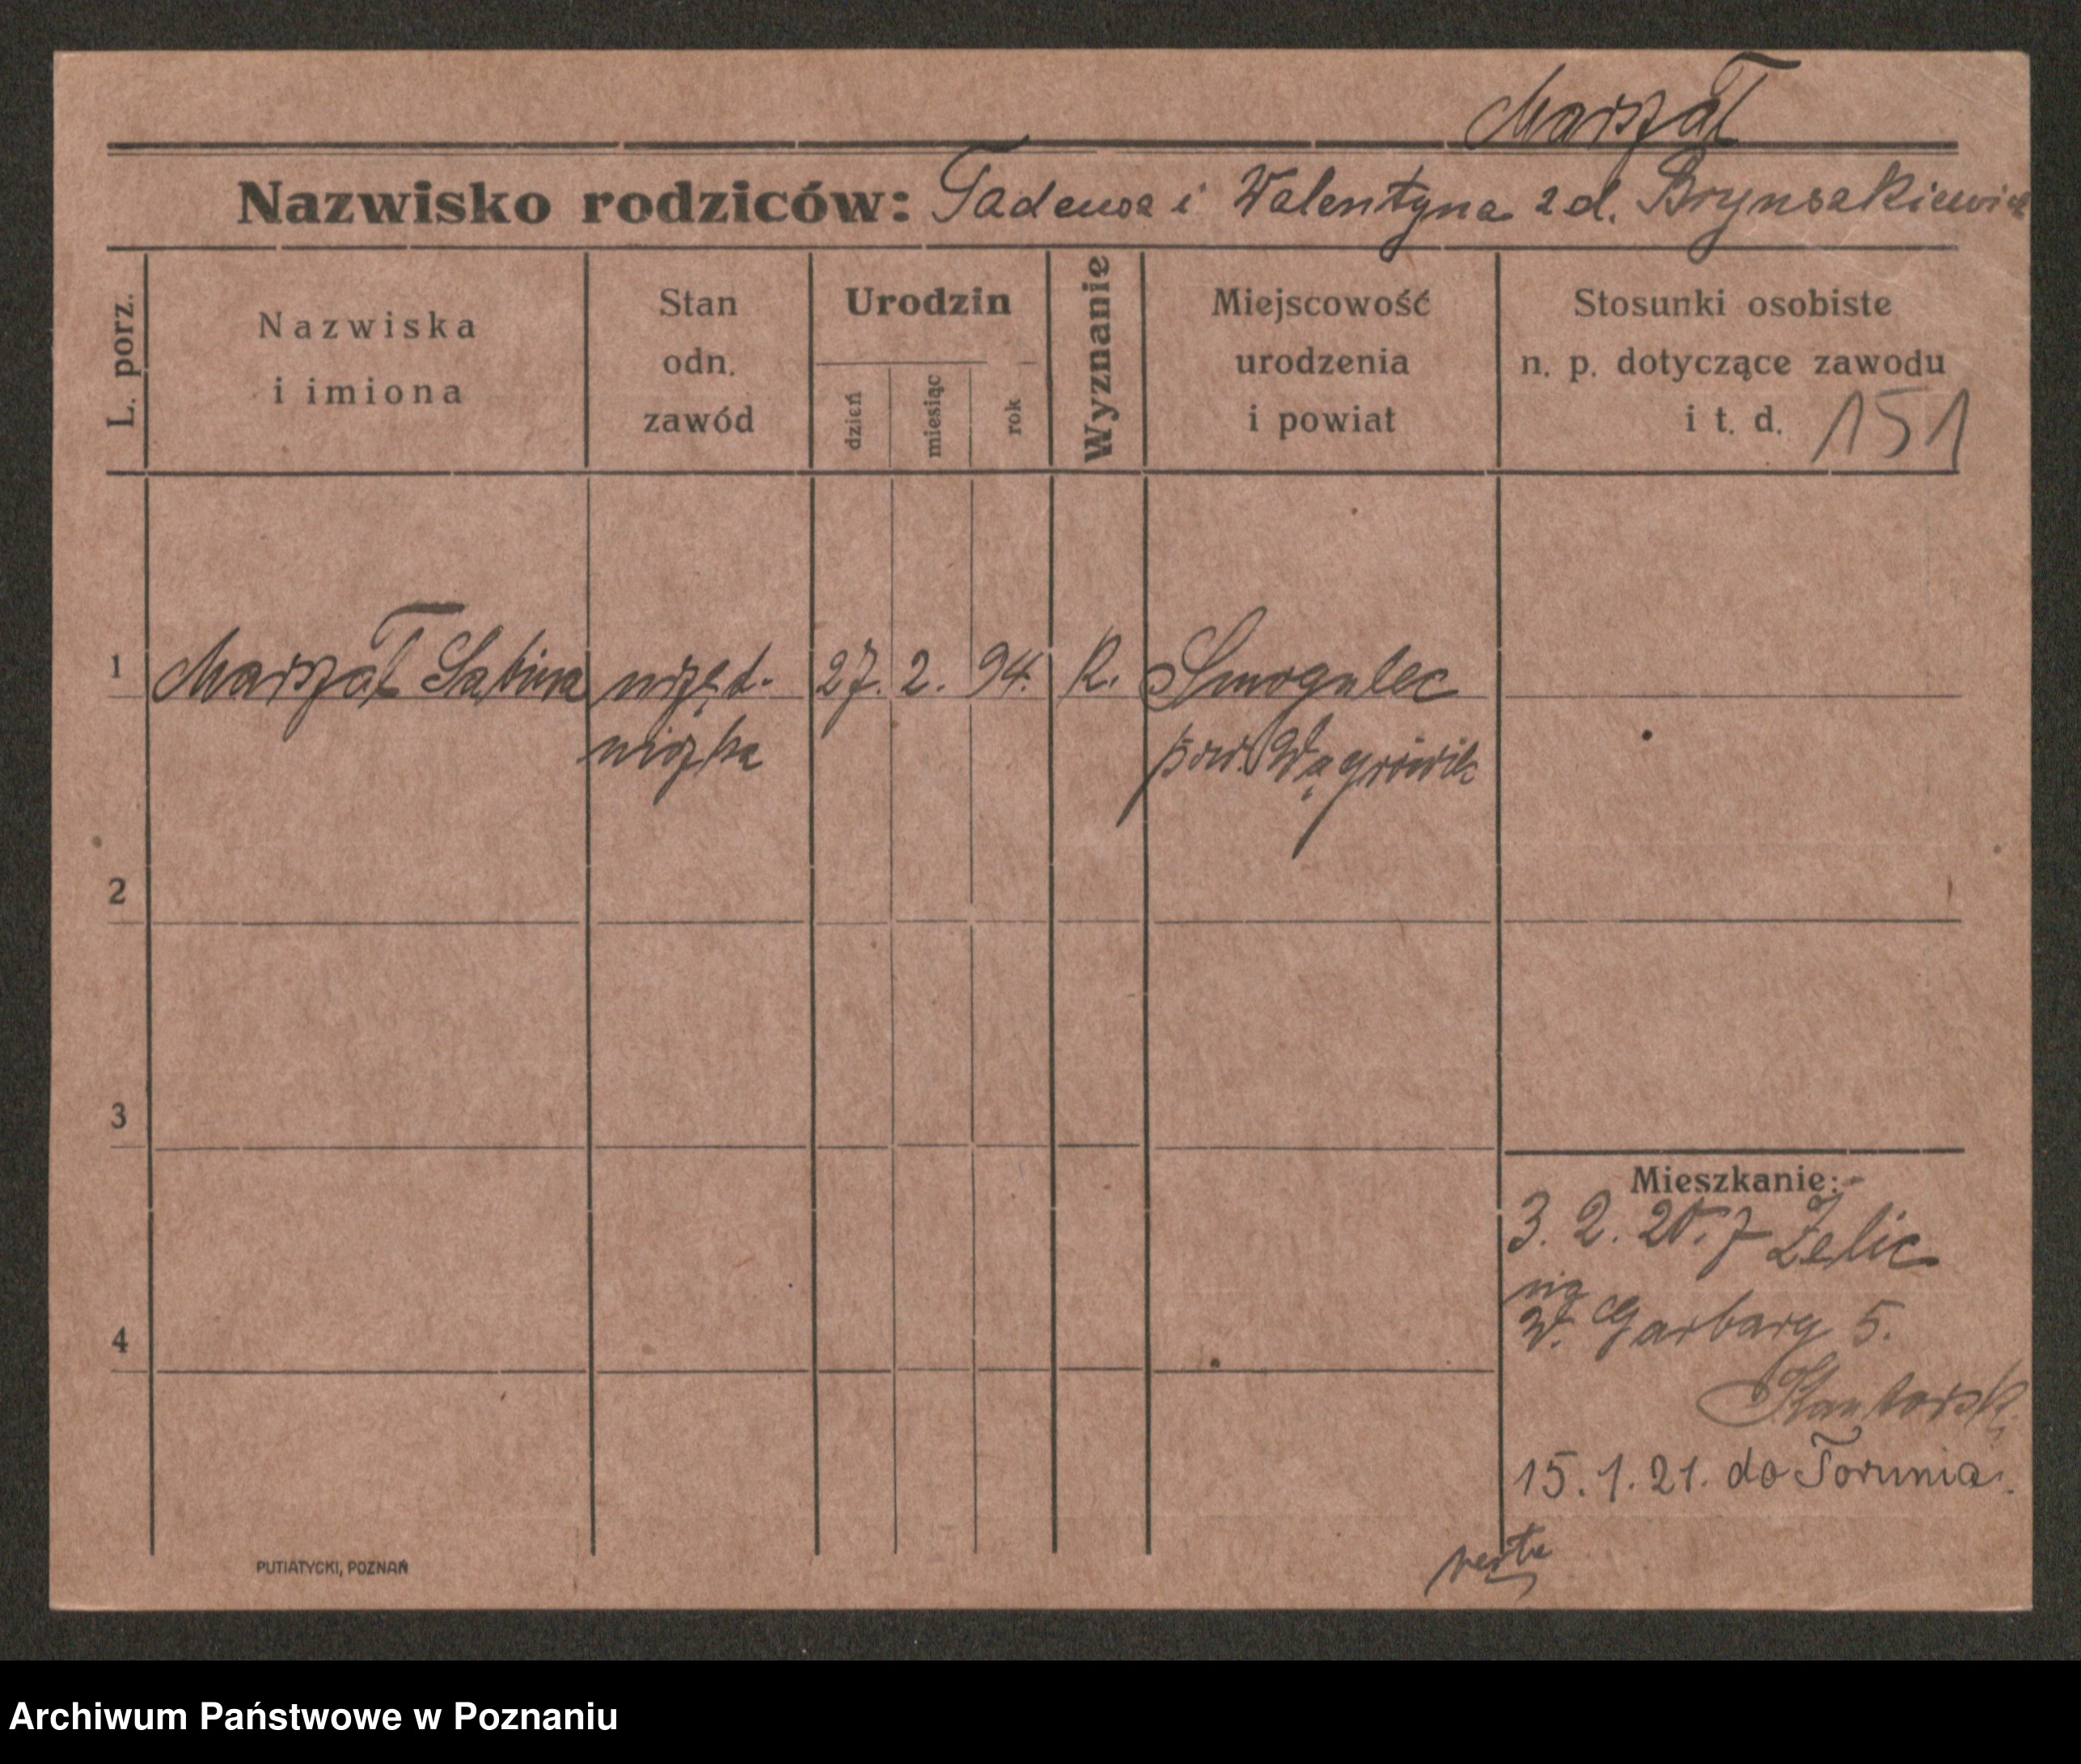 Marszał
Nazwisko rodziców: Tadeusz i Walentyna z d. Brynsakiewicz
L. porz.
Nazwiska
i imiona
Stan
odn.
zawód
Urodzin
dzień
miesiąc
rok
Wyznanie
Miejscowość
urodzenia
i powiat
Stosunki osobiste
n. p. dotyczące zawodu
i t. d. 151
1 Marszał Sabina urzęd- 27. 2. 94. R. Smogulec
niczka pow. Wągrówik
2
3
4
Mieszkanie:
3. 2. 20. z Żelic
W. Garbary 5.
Kantorski
15. 1. 21. do Torunia.
verte
PUTIATYCKI, POZNAŃ
Archiwum Państwowe w Poznaniu